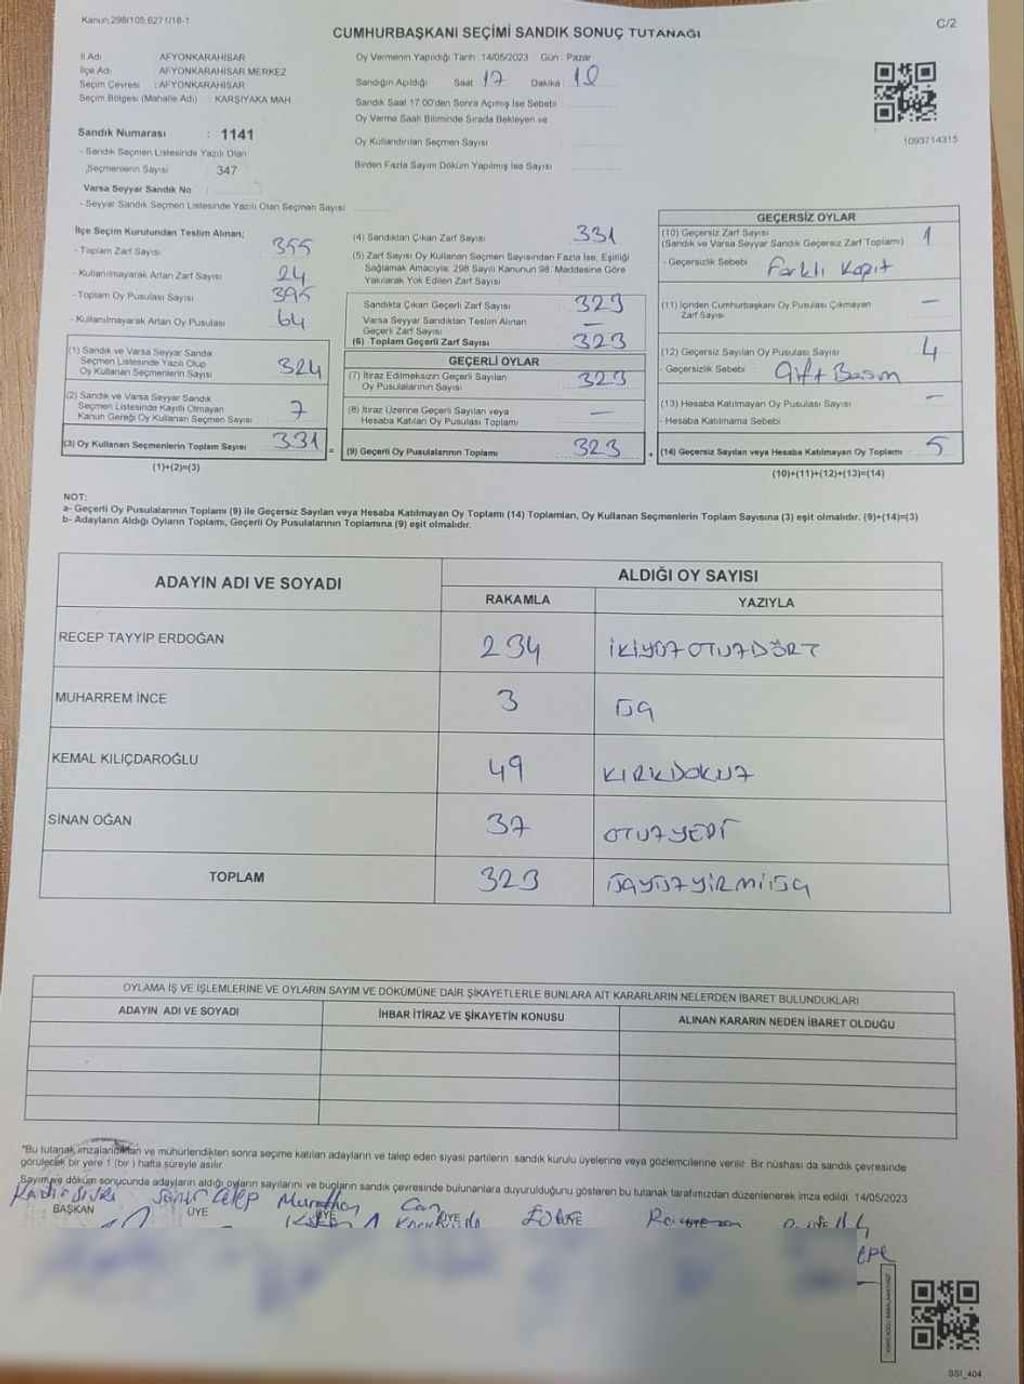 Kanun:298/105,6271/18-1
C/2
CUMHURBAŞKANI SEÇİMİ SANDIK SONUÇ TUTANAĞI
İl Adı : AFYONKARAHİSAR
İlçe Adı : AFYONKARAHİSAR MERKEZ
Seçim Çevresi : AFYONKARAHİSAR
Seçim Bölgesi (Mahalle Adı) : KARŞIYAKA MAH.
Sandık Numarası : 1141
- Sandık Seçmen Listesinde Yazılı Olan
Seçmenlerin Sayısı 347
Varsa Seyyar Sandık No :
- Seyyar Sandık Seçmen Listesinde Yazılı Olan Seçmen Sayısı
Oy Vermenin Yapıldığı Tarih : 14/05/2023 Gün : Pazar
Sandığın Açıldığı Saat 17 Dakika
Sandık Saat 17.00'den Sonra Açmış İse Sebebi
Oy Verme Saati Bitiminde Sırada Bekleyen ve
Oy Kullandırılan Seçmen Sayısı
Birden Fazla Sayım Döküm Yapılmış İse Sayısı
1093714315
İlçe Seçim Kurulundan Teslim Alınan;
- Toplam Zarf Sayısı 355
- Kullanılmayarak Artan Zarf Sayısı 24
- Toplam Oy Pusulası Sayısı 395
- Kullanılmayarak Artan Oy Pusulası 64
(1) Sandık ve Varsa Seyyar Sandık
Seçmen Listesinde Yazılı Olup
Oy Kullanan Seçmenlerin Sayısı 324
(2) Sandık ve Varsa Seyyar Sandık
Seçmen Listesinde Kayıtlı Olmayan
Kanun Gereği Oy Kullanan Seçmen Sayısı 7
(3) Oy Kullanan Seçmenlerin Toplam Sayısı 331
(1)+(2)=(3)
(4) Sandıktan Çıkan Zarf Sayısı 331
(5) Zarf Sayısı Oy Kullanan Seçmen Sayısından Fazla İse, Eşitliği
Sağlamak Amacıyla; 298 Sayılı Kanunun 98. Maddesine Göre
Yakılarak Yok Edilen Zarf Sayısı
Sandıkta Çıkan Geçerli Zarf Sayısı 323
Varsa Seyyar Sandıktan Teslim Alınan
Geçerli Zarf Sayısı —
(6) Toplam Geçerli Zarf Sayısı 323
GEÇERLİ OYLAR
(7) İtiraz Edilmeksizin Geçerli Sayılan
Oy Pusulalarının Sayısı 323
(8) İtiraz Üzerine Geçerli Sayılan veya
Hesaba Katılan Oy Pusulası Toplamı —
= (9) Geçerli Oy Pusulalarının Toplamı 323
GEÇERSİZ OYLAR
(10) Geçersiz Zarf Sayısı 1
(Sandık ve Varsa Seyyar Sandık Geçersiz Zarf Toplamı)
- Geçersizlik Sebebi Farklı Kağıt
(11) İçinden Cumhurbaşkanı Oy Pusulası Çıkmayan —
Zarf Sayısı
(12) Geçersiz Sayılan Oy Pusulası Sayısı 4
- Geçersizlik Sebebi Çift Basım
(13) Hesaba Katılmayan Oy Pusulası Sayısı —
- Hesaba Katılmama Sebebi
+ (14) Geçersiz Sayılan veya Hesaba Katılmayan Oy Toplamı 5
(10)+(11)+(12)+(13)=(14)
NOT:
a- Geçerli Oy Pusulalarının Toplamı (9) ile Geçersiz Sayılan veya Hesaba Katılmayan Oy Toplamı (14) Toplamları, Oy Kullanan Seçmenlerin Toplam Sayısına (3) eşit olmalıdır. (9)+(14)=(3)
b- Adayların Aldığı Oyların Toplamı, Geçerli Oy Pusulalarının Toplamına (9) eşit olmalıdır.
ADAYIN ADI VE SOYADI
ALDIĞI OY SAYISI
RAKAMLA YAZIYLA
RECEP TAYYİP ERDOĞAN 234 İKİYÜZOTUZDÖRT
MUHARREM İNCE 3 ÜÇ
KEMAL KILIÇDAROĞLU 49 KIRKDOKUZ
SİNAN OĞAN 37 OTUZYEDİ
TOPLAM 323 ÜÇYÜZYİRMİÜÇ
OYLAMA İŞ VE İŞLEMLERİNE VE OYLARIN SAYIM VE DÖKÜMÜNE DAİR ŞİKAYETLERLE BUNLARA AİT KARARLARIN NELERDEN İBARET BULUNDUKLARI
ADAYIN ADI VE SOYADI İHBAR İTİRAZ VE ŞİKAYETİN KONUSU ALINAN KARARIN NEDEN İBARET OLDUĞU
*Bu tutanak imzalandıktan ve mühürlendikten sonra seçime katılan adayların ve talep eden siyasi partilerin sandık kurulu üyelerine veya gözlemcilerine verilir. Bir nüshası da sandık çevresinde
görülecek bir yere 1 (bir) hafta süreyle asılır.
Sayım ve döküm sonucunda adayların aldığı oyların sayılarını ve bunların sandık çevresinde bulunanlara duyurulduğunu gösteren bu tutanak tarafımızdan düzenlenerek imza edildi. 14/05/2023
BAŞKAN ÜYE ÜYE ÜYE ÜYE
SSI_404